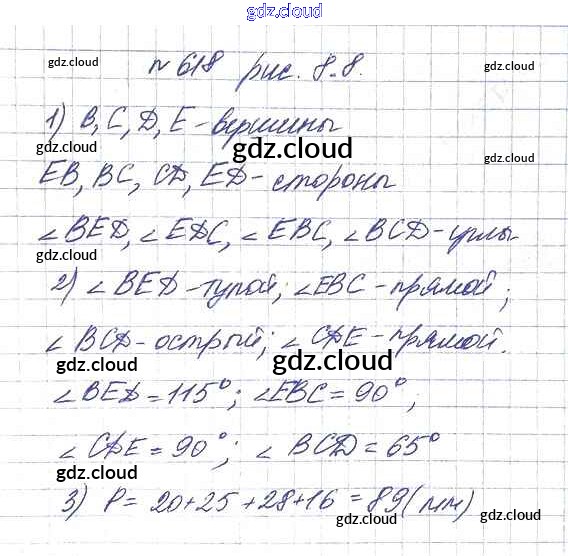 gdz.cloud
№ 618 рис. 8.8.
gdz.cloud
gdz.cloud
1) B, C, D, E - вершины
gdz.cloud
EB, BC, CD, ED - стороны
gdz.cloud
gdz.cloud
∠BED, ∠EDC, ∠EBC, ∠BCD - углы
gdz.cloud
gdz.cloud
2) ∠BED - тупой; ∠EBC - прямой;
∠BCD - острый; ∠CDE - прямой.
gdz.cloud
gdz.cloud
gdz.cloud
∠BED = 115°; ∠EBC = 90°;
∠CDE = 90°; ∠BCD = 65°
gdz.cloud
gdz.cloud
3) P = 20+25+28+16 = 89 (мм)
gdz.cloud
gdz.cloud
gdz.cloud